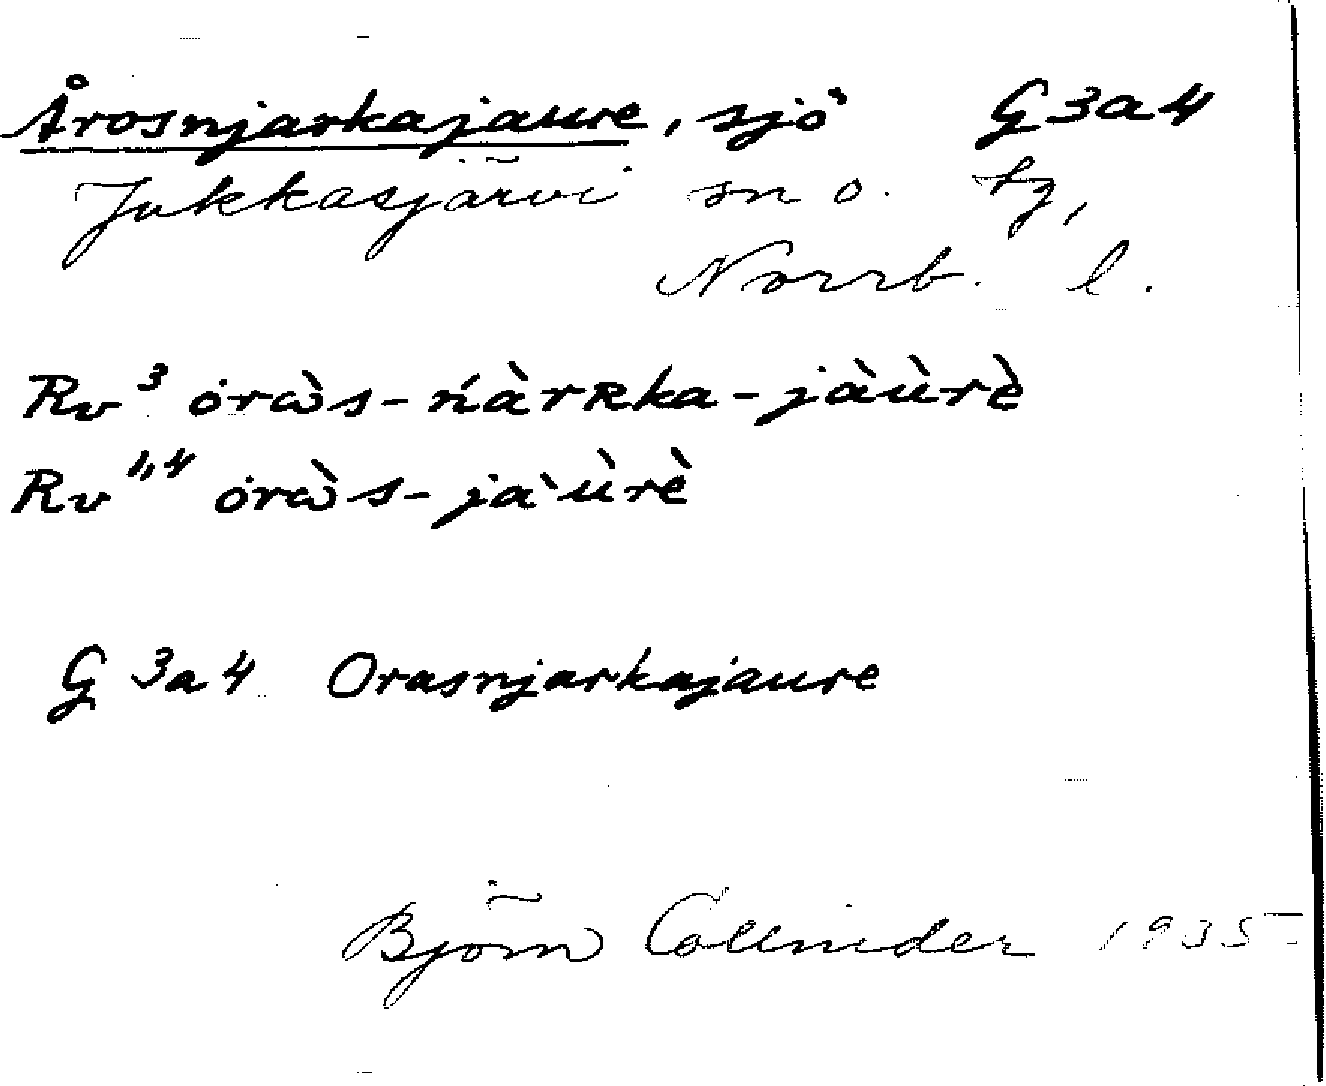 Årosnjarkajaure, sjö G3a4
Jukkasjärvi sn o. tg,
Norrb. l.
Rv³ óròs-ńàrRka-jàùrè
Rv¹,⁴ óròs-jàùrè
G 3a4 Orasnjarkajaure
Björn Collinder 1935